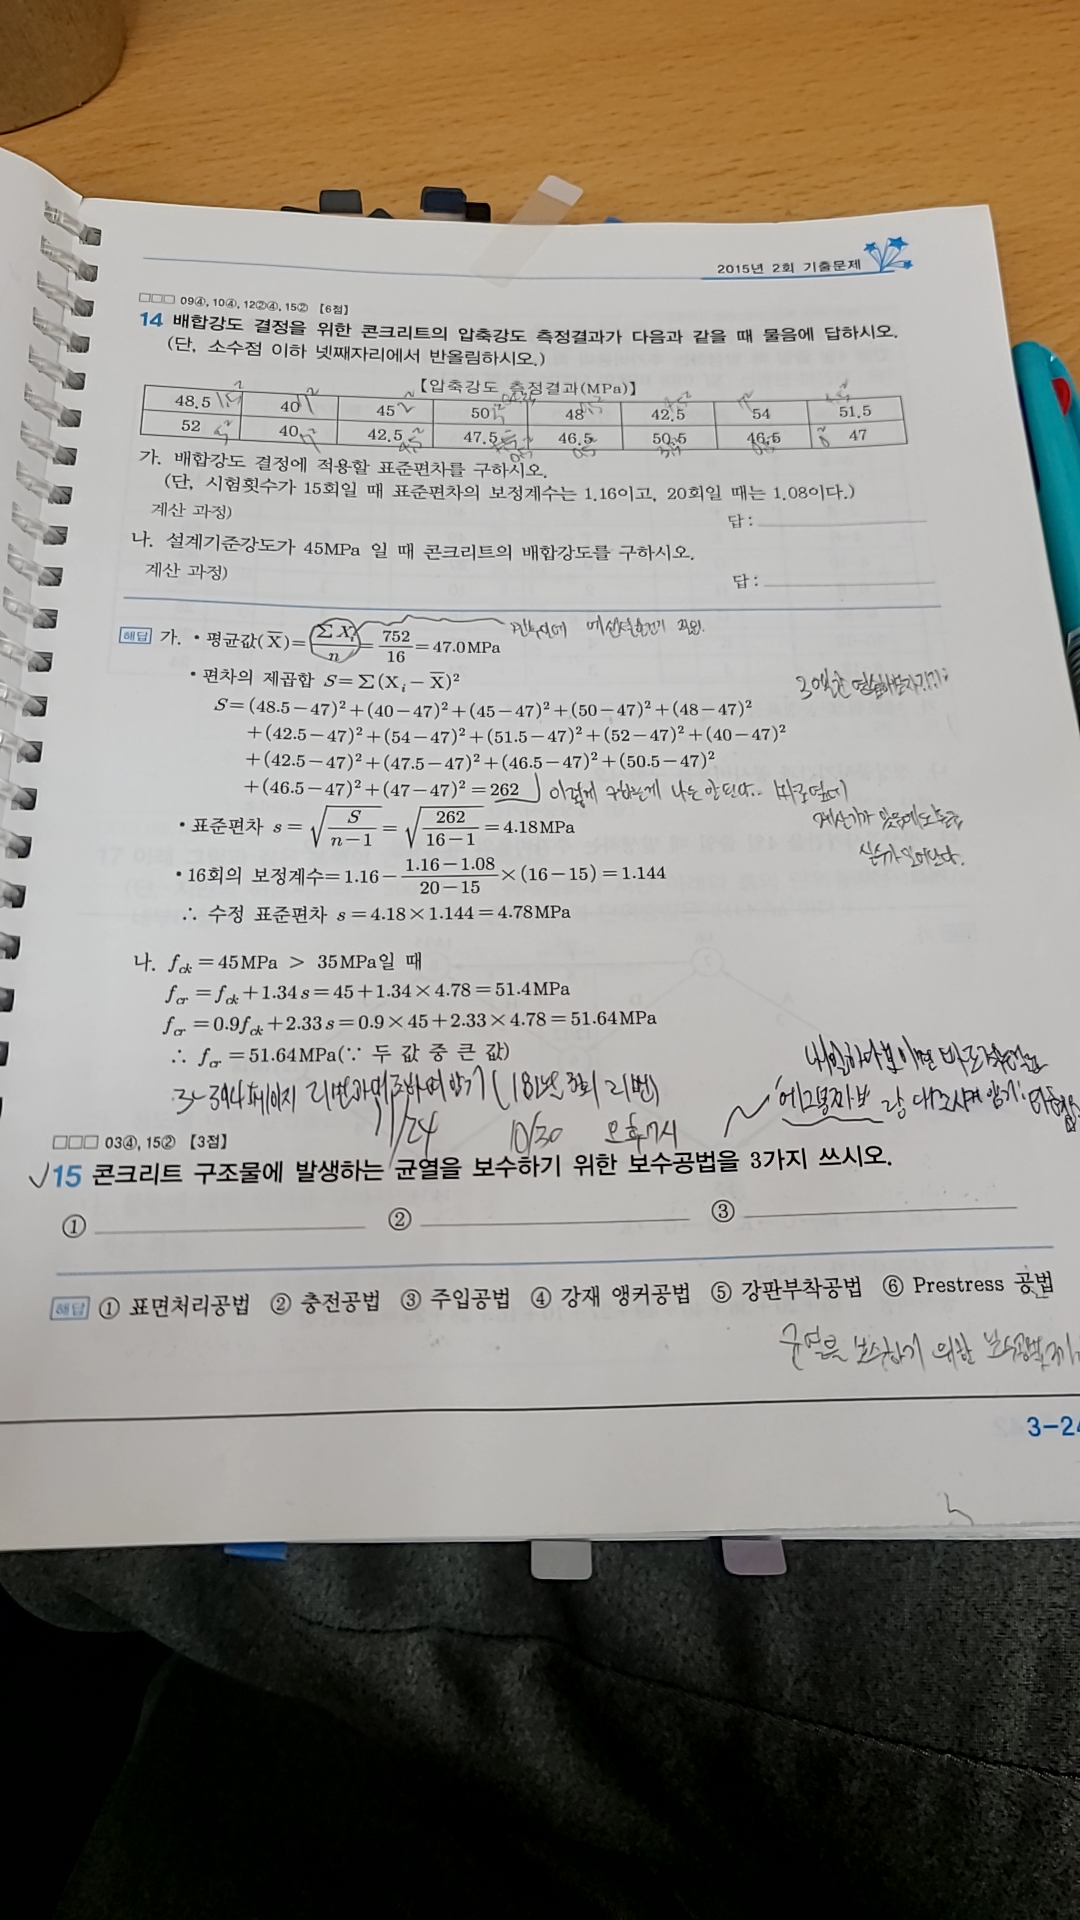 2015년 2회 기출문제
□□□ 09④, 10④, 12②④, 15② 【6점】
14 배합강도 결정을 위한 콘크리트의 압축강도 측정결과가 다음과 같을 때 물음에 답하시오.
(단, 소수점 이하 넷째자리에서 반올림하시오.)
【압축강도 측정결과(MPa)】
48.5 40 45 50 48 42.5 54 51.5
52 40 42.5 47.5 46.5 50.5 46.5 47
가. 배합강도 결정에 적용할 표준편차를 구하시오.
(단, 시험횟수가 15회일 때 표준편차의 보정계수는 1.16이고, 20회일 때는 1.08이다.)
계산 과정)
답 :
나. 설계기준강도가 45MPa 일 때 콘크리트의 배합강도를 구하시오.
계산 과정)
답 :
해답 가. • 평균값(X̄)= ΣXᵢ/n = 752/16 =47.0MPa
• 편차의 제곱합 S=Σ(Xᵢ−X̄)²
S=(48.5−47)²+(40−47)²+(45−47)²+(50−47)²+(48−47)²
+(42.5−47)²+(54−47)²+(51.5−47)²+(52−47)²+(40−47)²
+(42.5−47)²+(47.5−47)²+(46.5−47)²+(50.5−47)²
+(46.5−47)²+(47−47)²=262 이렇게 구하는게 나는 안된다.. 바로옆에
계산기가 있음에도
• 표준편차 s=√(S/(n−1))=√(262/(16−1))=4.18MPa
• 16회의 보정계수=1.16−(1.16−1.08)/(20−15)×(16−15)=1.144
∴ 수정 표준편차 s=4.18×1.144=4.78MPa
나. fck=45MPa > 35MPa일 때
fcr=fck+1.34s=45+1.34×4.78=51.4MPa
fcr=0.9fck+2.33s=0.9×45+2.33×4.78=51.64MPa
∴ fcr=51.64MPa(∵ 두 값 중 큰 값)
3-394페이지
11/24 10/30 오후7시
□□□ 03④, 15② 【3점】
15 콘크리트 구조물에 발생하는 균열을 보수하기 위한 보수공법을 3가지 쓰시오.
① ② ③
해답 ① 표면처리공법 ② 충전공법 ③ 주입공법 ④ 강재 앵커공법 ⑤ 강판부착공법 ⑥ Prestress 공법
균열을 보수하기 위한 보수공법
3-24